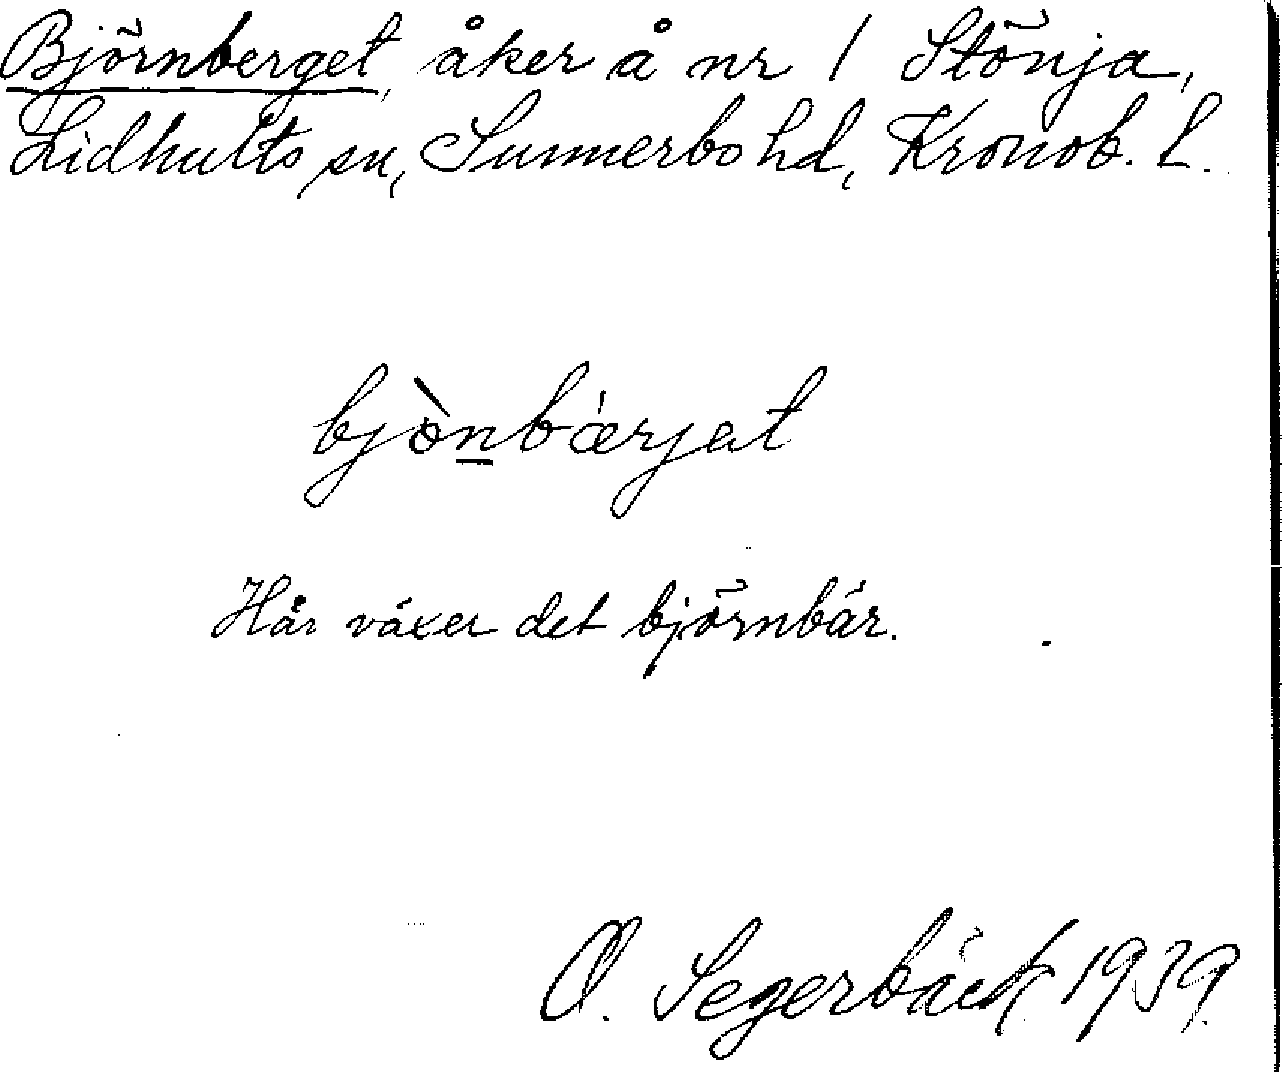 Björnberget, åker å nr 1 Stönja,
Lidhults sn, Sunnerbo hd, Kronob. L.
bjò̱nbærjet
Här växer det björnbär.
O. Segerbäck 1939